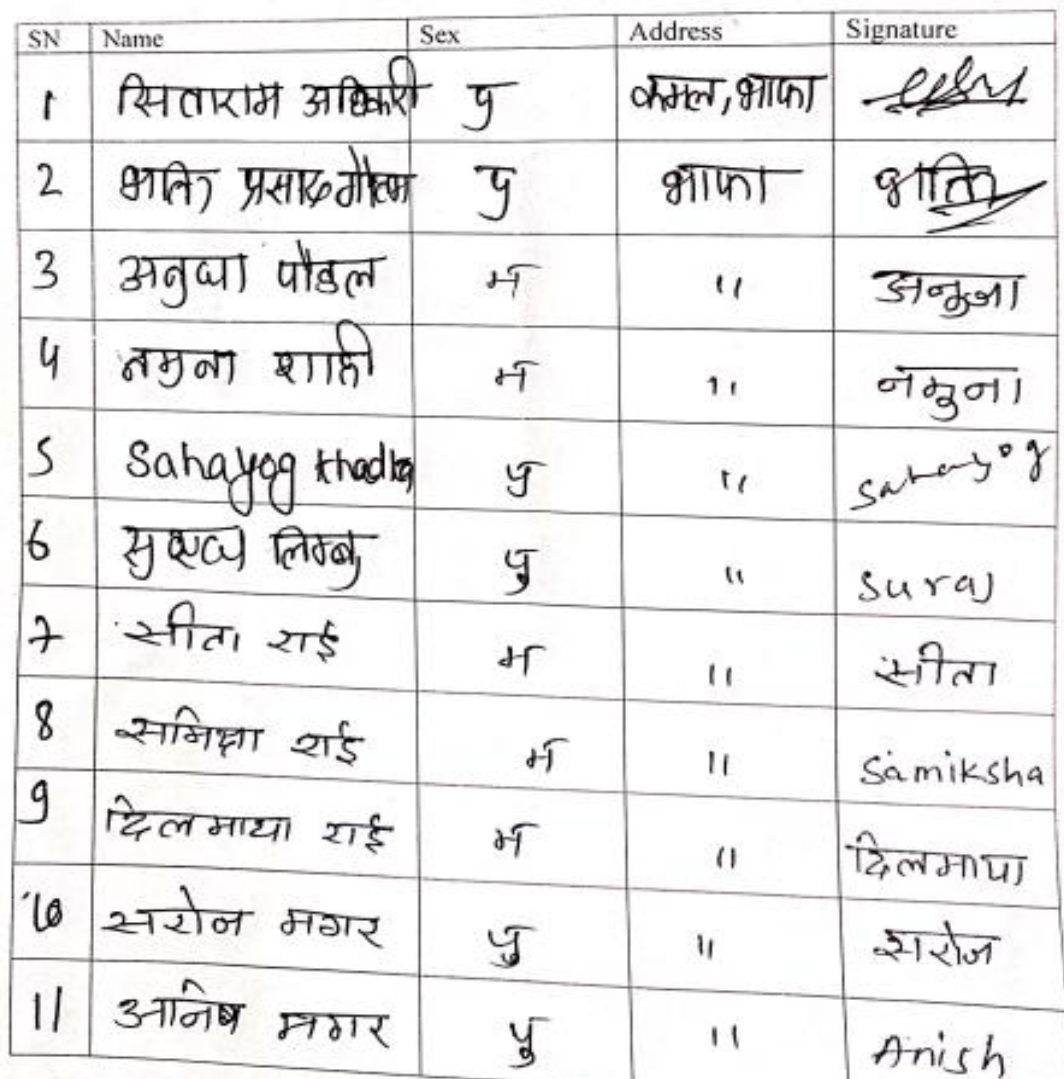 SN Name Sex Address Signature
1 सिताराम अधिकारी पु कमल, झापा
2 शान्ति प्रसाद गौतम पु झापा शान्ति
3 अनुजा पौडेल म " अनुजा
4 नमुना शाही म " नमुना
5 Sahayog Khadka पु " Sahayog
6 सुरज लिम्बु पु " Suraj
7 सीता राई म " सीता
8 समिक्षा राई म " Samiksha
9 दिलमाया राई म " दिलमाया
10 सरोज मगर पु " सरोज
11 अनिष मगर पु " Anish